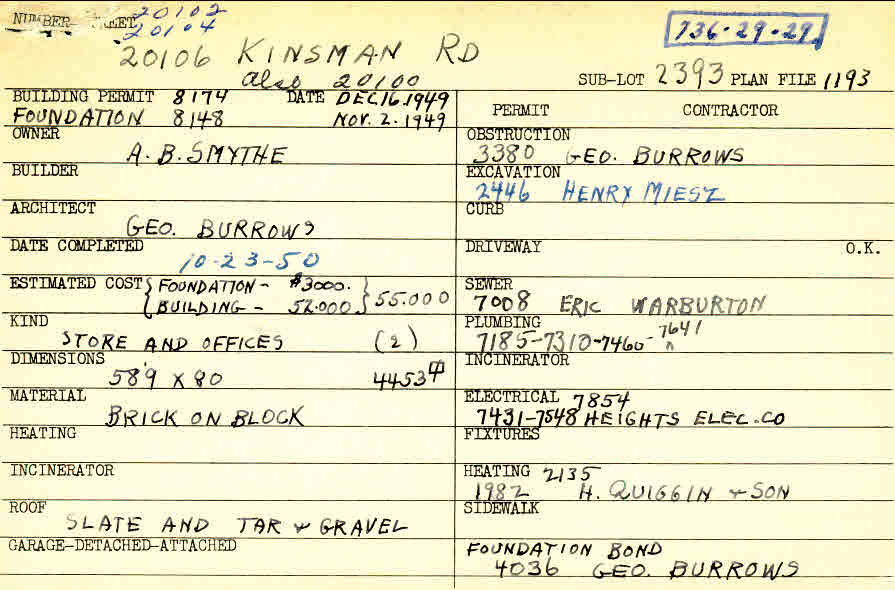 NUMBER STREET 20102
20104
736-29-29
20106 KINSMAN RD
also 20100
SUB-LOT 2393 PLAN FILE 1193
BUILDING PERMIT 8174 DATE DEC 16.1949
FOUNDATION 8148 NOV. 2. 1949
OWNER
A. B. SMYTHE
BUILDER
ARCHITECT
GEO. BURROWS
DATE COMPLETED
10-23-50
ESTIMATED COST { FOUNDATION - $3000. }
{ BUILDING - 52.000 } 55.000
KIND
STORE AND OFFICES (2)
DIMENSIONS
58'9 X 80 4453
MATERIAL
BRICK ON BLOCK
HEATING
INCINERATOR
ROOF
SLATE AND TAR + GRAVEL
GARAGE-DETACHED-ATTACHED
PERMIT CONTRACTOR
OBSTRUCTION
3380 GEO. BURROWS
EXCAVATION
2446 HENRY MIESZ
CURB
DRIVEWAY O.K.
SEWER
7008 ERIC WARBURTON
PLUMBING
7185-7310-7460-7641
INCINERATOR
ELECTRICAL 7854
7431-7548 HEIGHTS ELEC.CO
FIXTURES
HEATING 2135
1982 H. QUIGGIN + SON
SIDEWALK
FOUNDATION BOND
4036 GEO. BURROWS